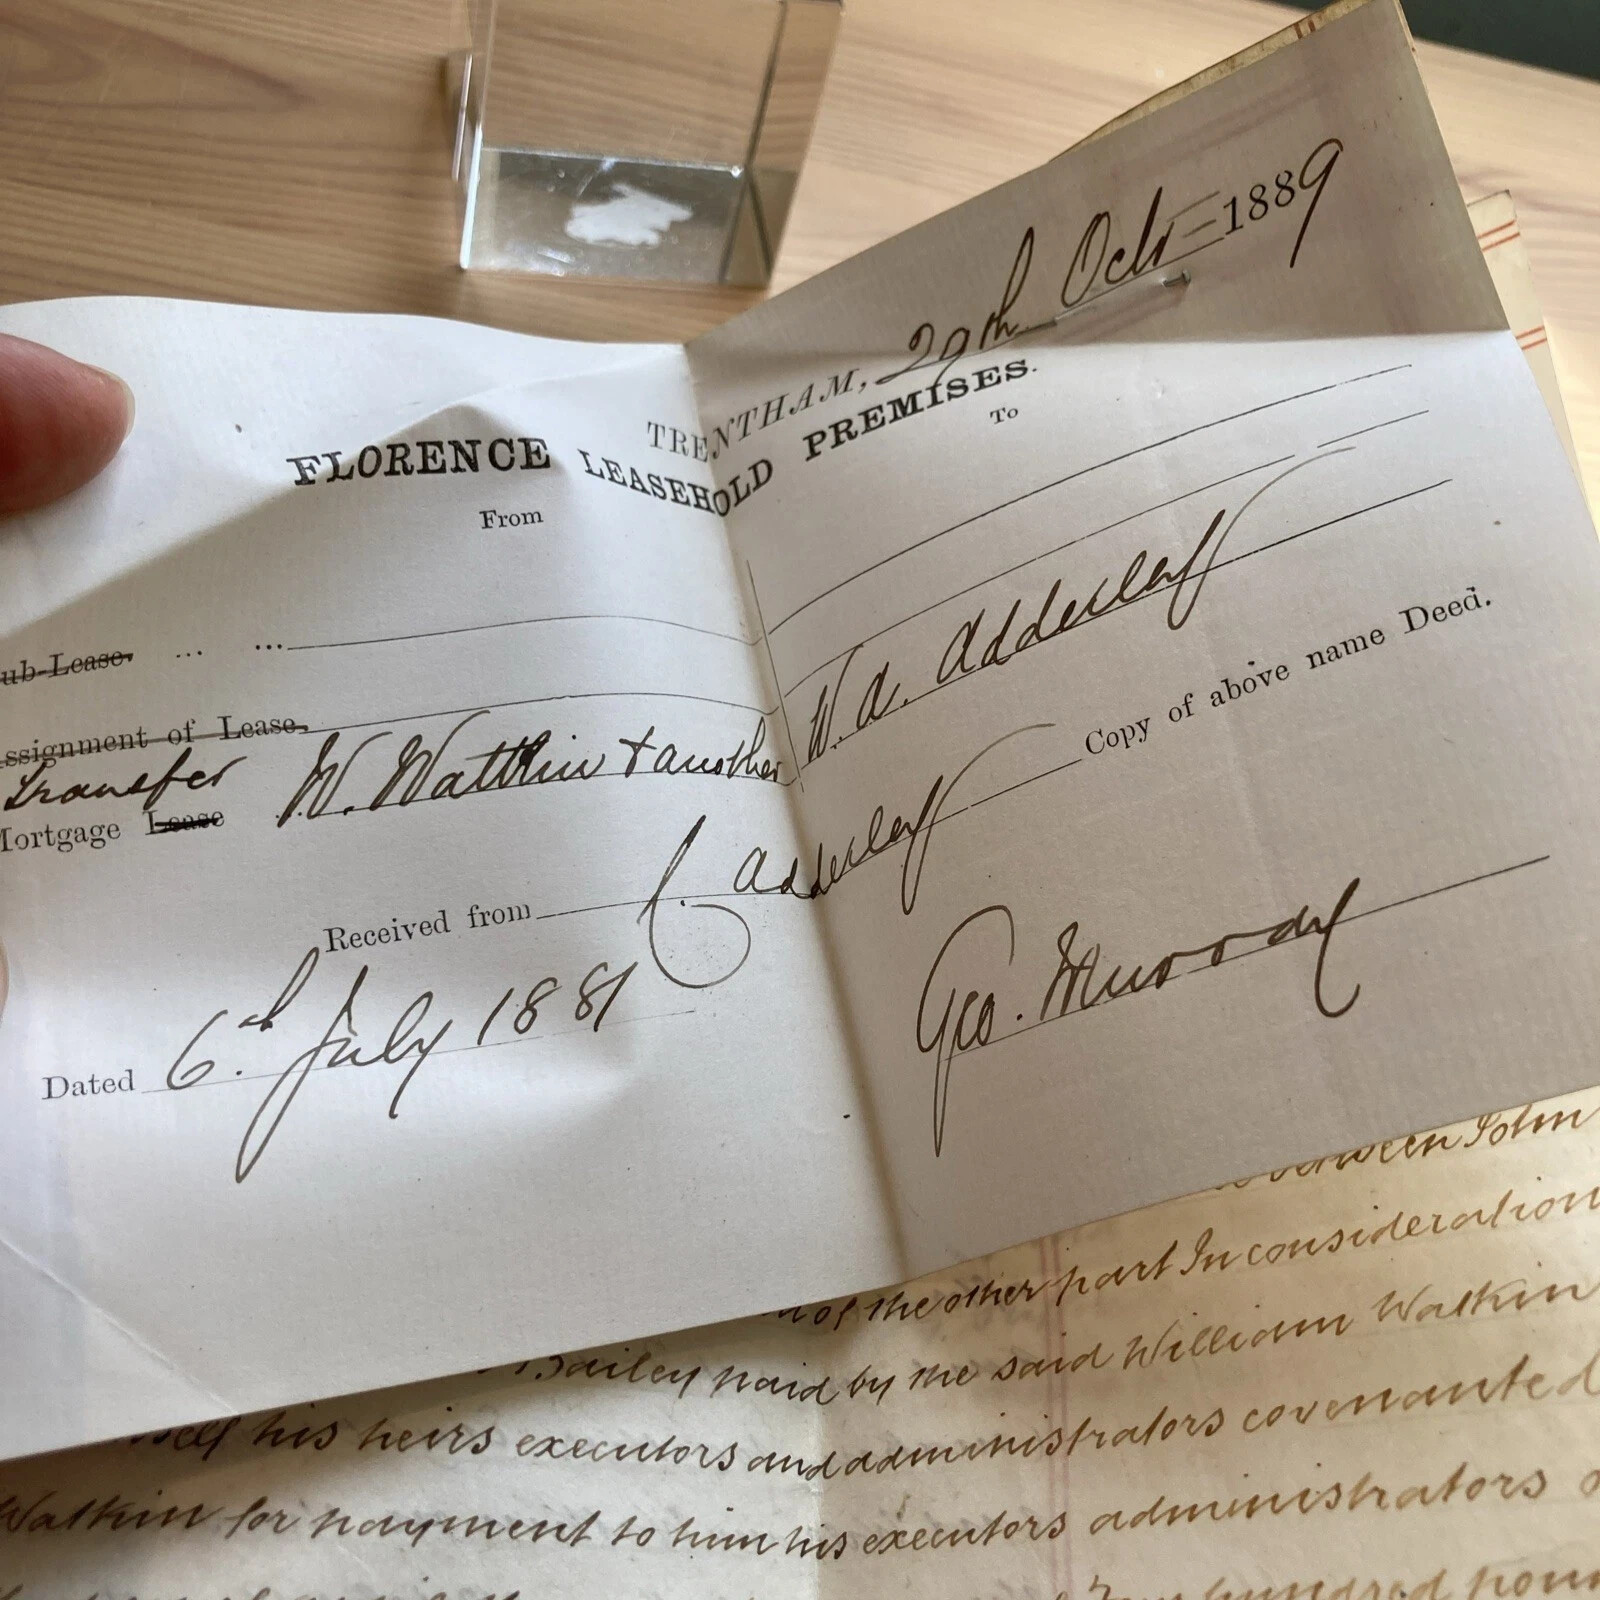 TRENTHAM, 29th Octr 1889
FLORENCE LEASEHOLD PREMISES.
From
To
ub-Lease. ... ...
ssignment of Lease.
transfer
Mortgage Lease W. Watkin & another W. A. Adderley
Received from C. Adderley Copy of above name Deed.
Dated 6th July 1881
Geo. Moody
between John
of the other part In consideration
Bailey paid by the said William Watkin
self his heirs executors and administrators covenanted
Watkin for payment to him his executors administrators
hundred poun